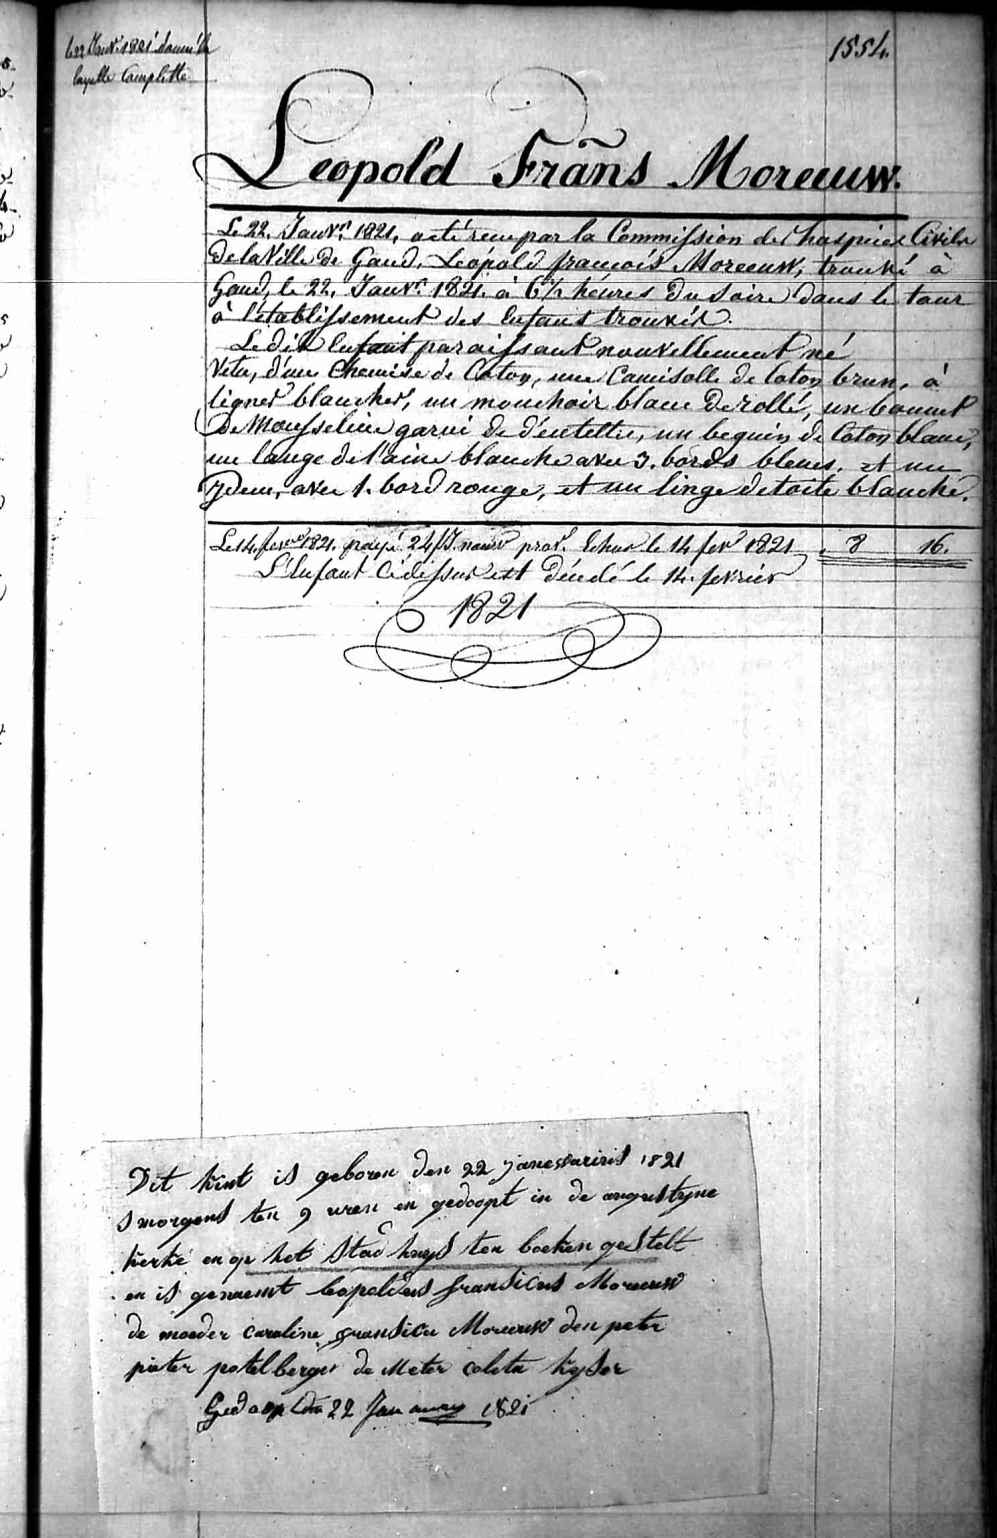 le 22 Janvr. 1821 donné la
layette Complette
1554.
Leopold Frañs Moreeuw.
Le 22. Janvr. 1821. acté reçu par la Commission des hospices Civils
de la Ville de Gand, Léopold françois Moreeuw, trouvé à
Gand, le 22. Janvr. 1821. à 6½ héures du soire dans le tour
à l'établissement des Enfans trouvés.
Le dit Enfant paraissant nouvellement né
Vetu, d'une Chemise de Coton, une Camisolle de Coton brun, à
lignes blanches, un mouchoir blanc de rollé, un bonnet
de Mousseline garni de d'entelle, un beguin de Coton blanc,
un lange de laine blanche avec 3. bords bleues. et un
ydem, avec 1. bord rouge, et un linge de toile blanche.
Le 14. fevrier 1821. payé 24 Js. nourr prov. Echus le 14 fevr 1821 8 16.
L'Enfant Cidessus est décédé le 14. fevrier
1821
Dit kint is geboren den 22 janewarius 1821
smorgens ten 9 uren en gedoopt in de augustyne
kerke en op het stad huys ten boeken gestelt
en is genaemt leopoldus fransicus Moreeuw
de moeder caroline fransica Moreeuw den peter
pieter potelberger de Meter coleta kyser
Gedoopt den 22 January 1821